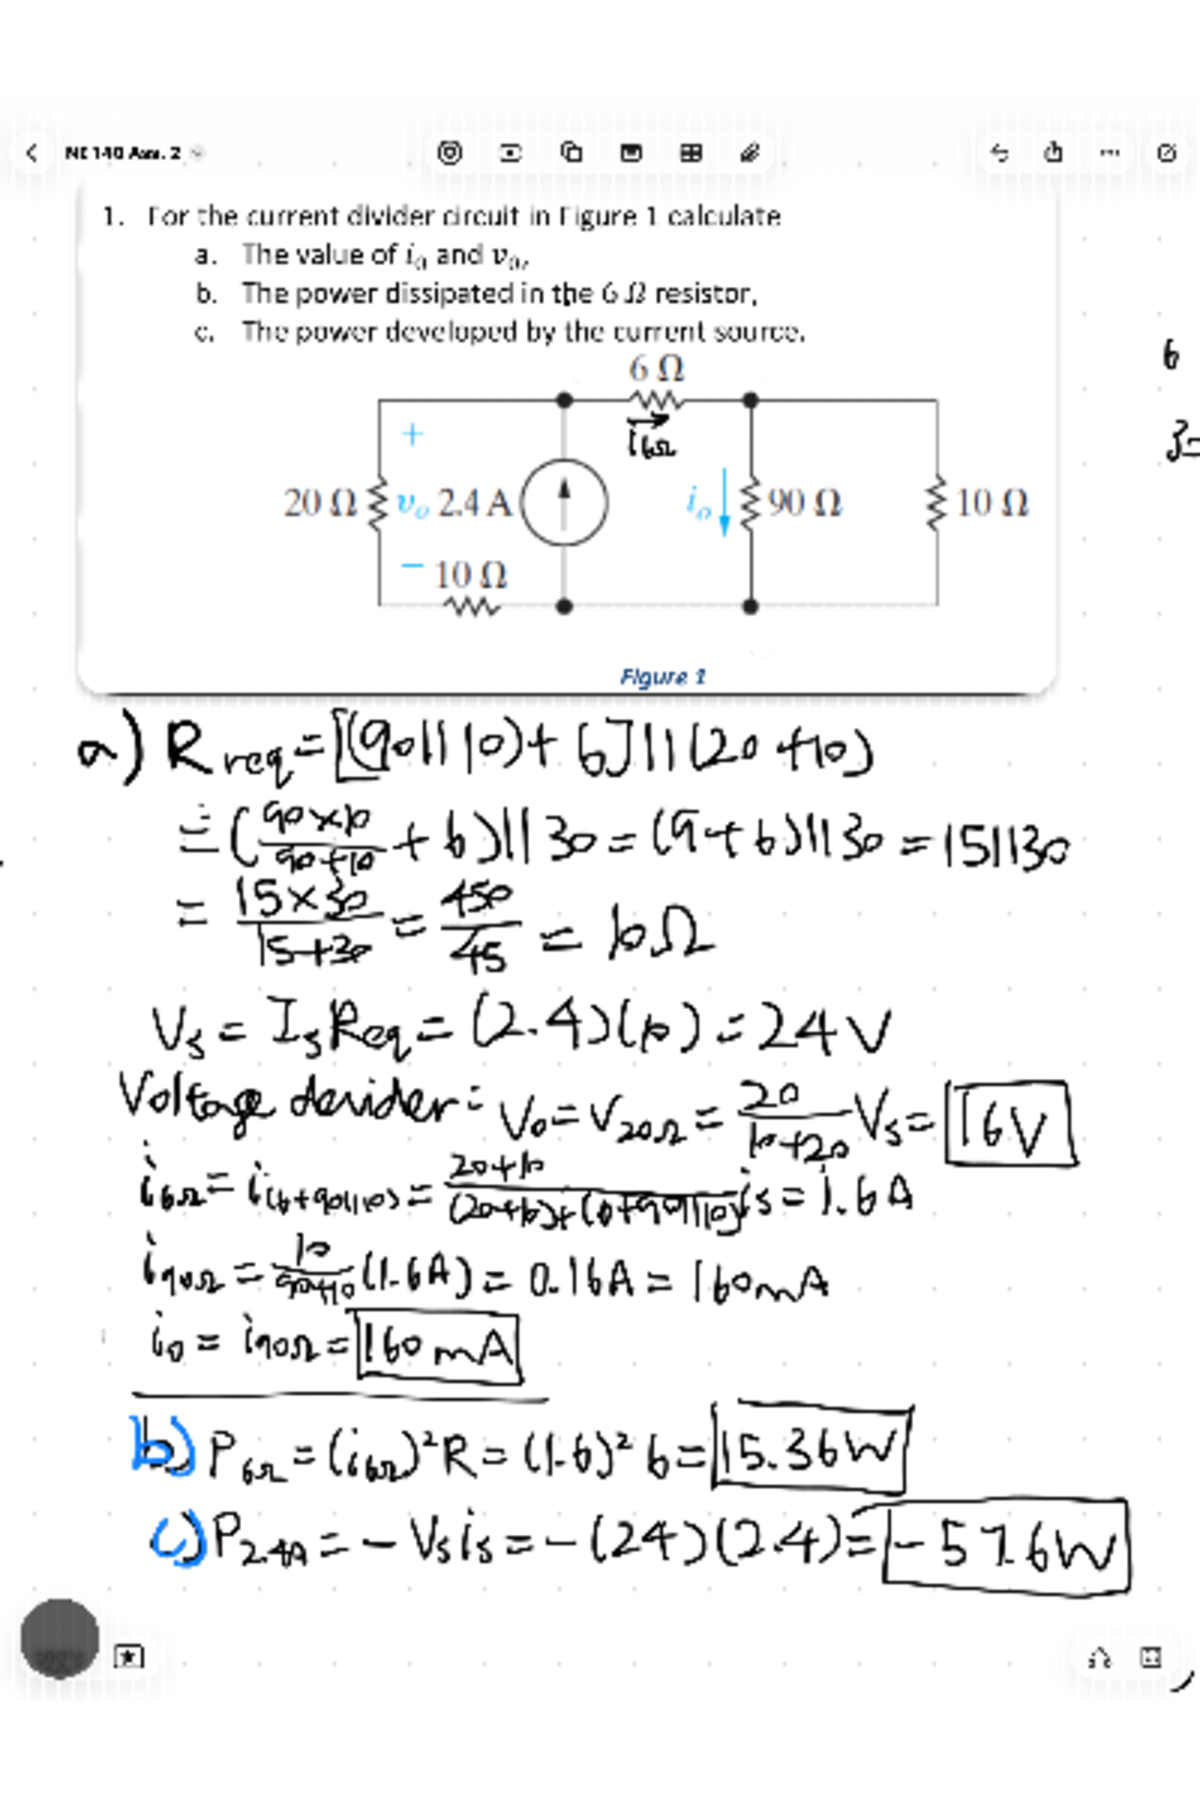 NE 140 Ass. 2
1. For the current divider circuit in Figure 1 calculate
a. The value of i₀ and v₀,
b. The power dissipated in the 6 Ω resistor,
c. The power developed by the current source.
6 Ω
i6Ω
+
20 Ω vₒ 2.4 A iₒ 90 Ω 10 Ω
− 10 Ω
Figure 1
6
a) Rreq = [(90||10)+6]||(20+10)
= (90×10/90+10 + 6)||30 = (9+6)||30 = 15||30
= 15×30/15+30 = 450/45 = 10Ω
Vs = IsReq = (2.4)(10) = 24V
Voltage devider: Vo = V20Ω = 20/10+20 Vs = 16V
i6Ω = i(6+90||10) = 20+10/(20+10)+(6+90||10) is = 1.6A
i90Ω = 10/90+10 (1.6A) = 0.16A = 160mA
io = i90Ω = 160mA
b) P6Ω = (i6Ω)²R = (1.6)²6 = 15.36W
c) P2.4A = −Vsis = −(24)(2.4) = −57.6W